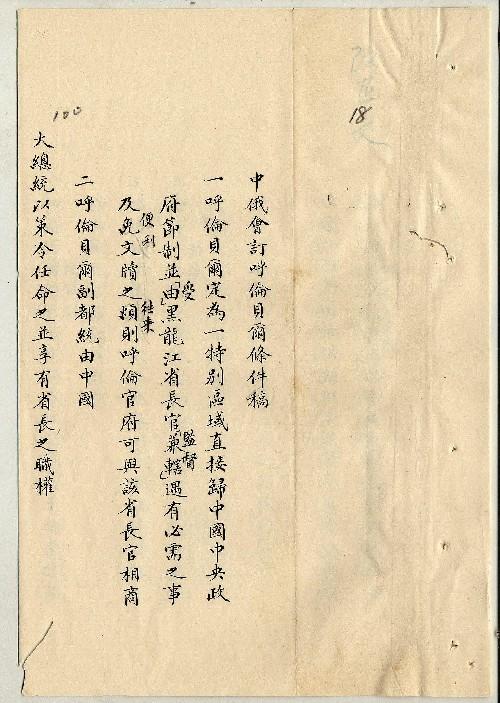 18
100
中俄會訂呼倫貝爾條件稿
一呼倫貝爾定為一特別區域直接歸中國中央政
府節制並「由」受黑龍江省長官「兼轄」監督遇有必需之事
及免文牘之類則呼倫官府可與該省長官相商
便利 往来
二呼倫貝爾副都統由中國
大總統以策令任命之並享有省長之職權